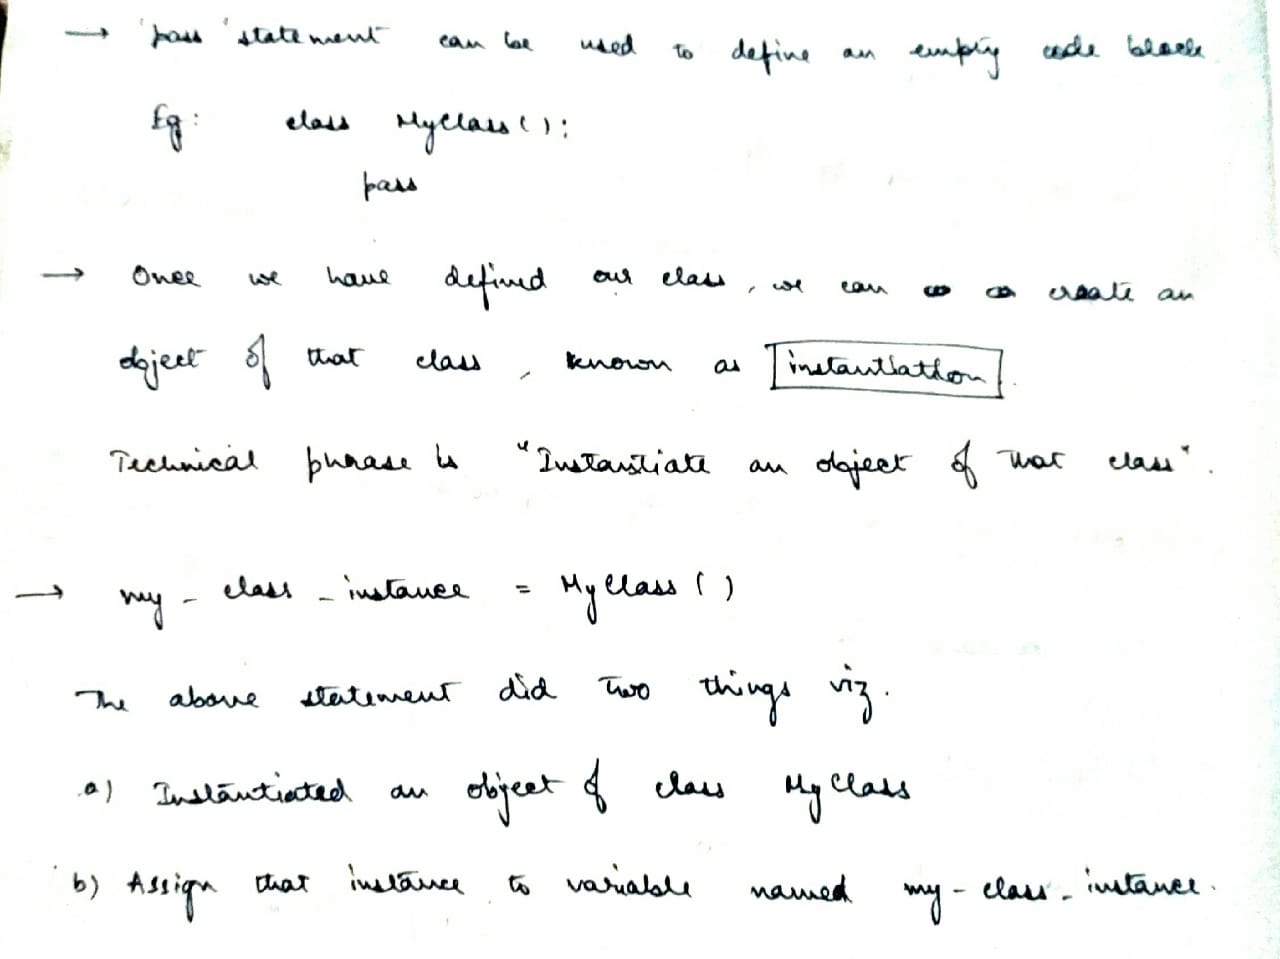 → 'pass' statement can be used to define an empty code block
Eg: class MyClass():
pass
→ Once we have defined our class, we can create an
object of that class, known as instantiation.
Technical phrase is "Instantiate an object of that class".
→ my_class_instance = MyClass()
The above statement did two things viz.
a) Instantiated an object of class MyClass
b) Assign that instance to variable named my_class_instance.